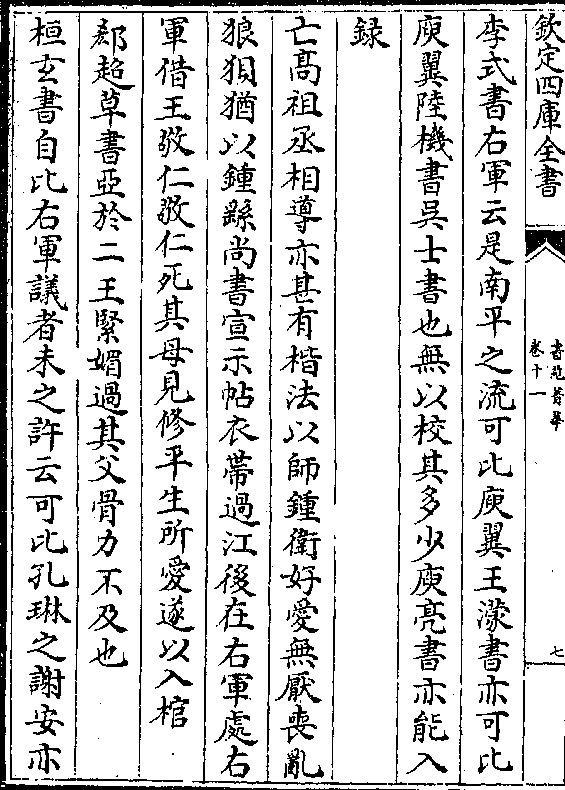 欽定四庫全書
書苑菁華
卷十一
七
李式書右軍云是南平之流可比庾翼王濛書亦可比
庾翼陸機書吳士書也無以校其多少庾亮書亦能入
録
亡髙祖丞相導亦甚有楷法以師鍾衛好愛無厭喪亂
狼狽猶以鍾繇尚書宣示帖衣帶過江後在右軍處右
軍借王敬仁敬仁死其母見修平生所愛遂以入棺
郄超草書亞於二王緊媚過其父骨力不及也
桓玄書自比右軍議者未之許云可比孔琳之謝安亦